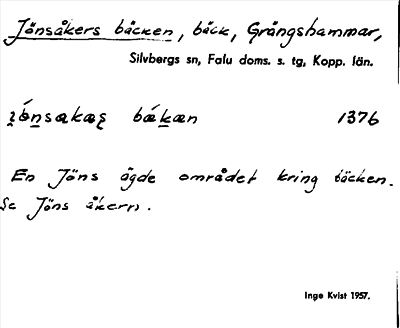 Jönsåkers bäcken, bäck, Grängshammar,
Silvbergs sn, Falu doms. s. tg, Kopp. län.
1376
En Jöns ägde området kring bäcken.
Se Jöns åkern.
Inge Kvist 1957.